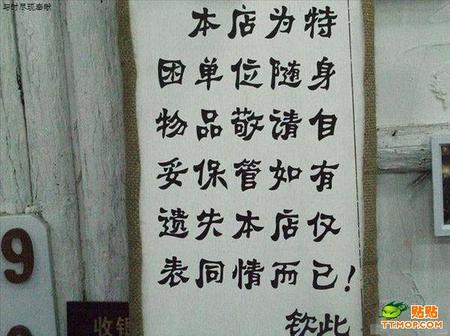 本店为特
困单位随身
物品敬请自
妥保管如有
遗失本店仅
表同情而已!
钦此
9
收银
贴贴
TT.MOP.COM